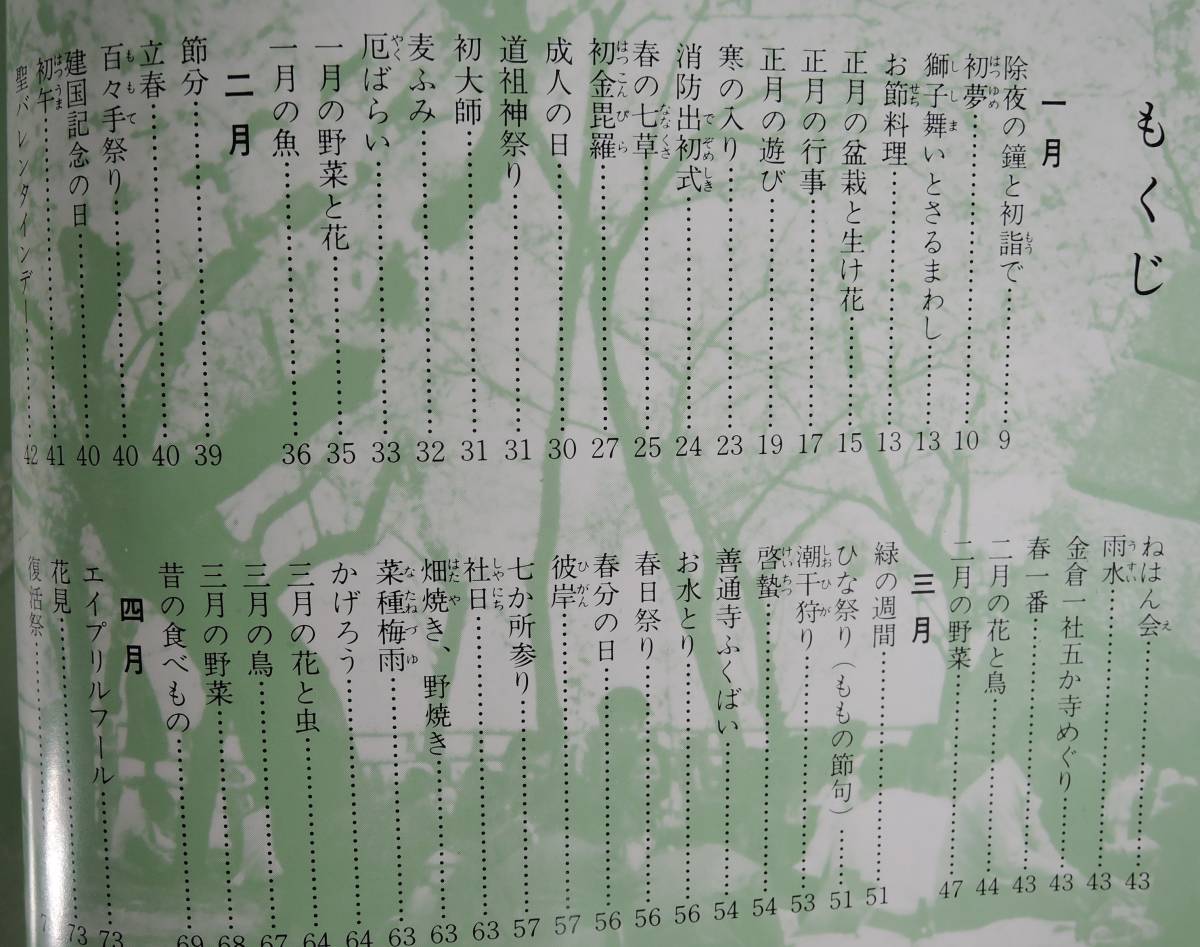 もくじ
一月
除夜の鐘と初詣で……9
初夢……10
獅子舞いとさるまわし……13
お節料理……13
正月の盆栽と生け花……15
正月の行事……17
正月の遊び……19
寒の入り……23
消防出初式……24
春の七草……25
初金毘羅……27
成人の日……30
道祖神祭り……31
初大師……31
麦ふみ……32
厄ばらい……33
一月の野菜と花……35
一月の魚……36
二月
節分……39
立春……40
百々手祭り……40
建国記念の日……40
初午……41
聖バレンタインデー……42
ねはん会……43
雨水……43
金倉一社五か寺めぐり……43
春一番……43
二月の花と鳥……44
二月の野菜……47
三月
緑の週間……51
ひな祭り（ももの節句）……51
潮干狩り……53
啓蟄……54
善通寺ふくばい……54
お水とり……56
春日祭り……56
春分の日……56
彼岸……57
七か所参り……57
社日……63
畑焼き、野焼き……63
菜種梅雨……63
かげろう……64
三月の花と虫……64
三月の鳥……67
三月の野菜……68
昔の食べもの……69
四月
エイプリルフール……73
花見……73
復活祭……